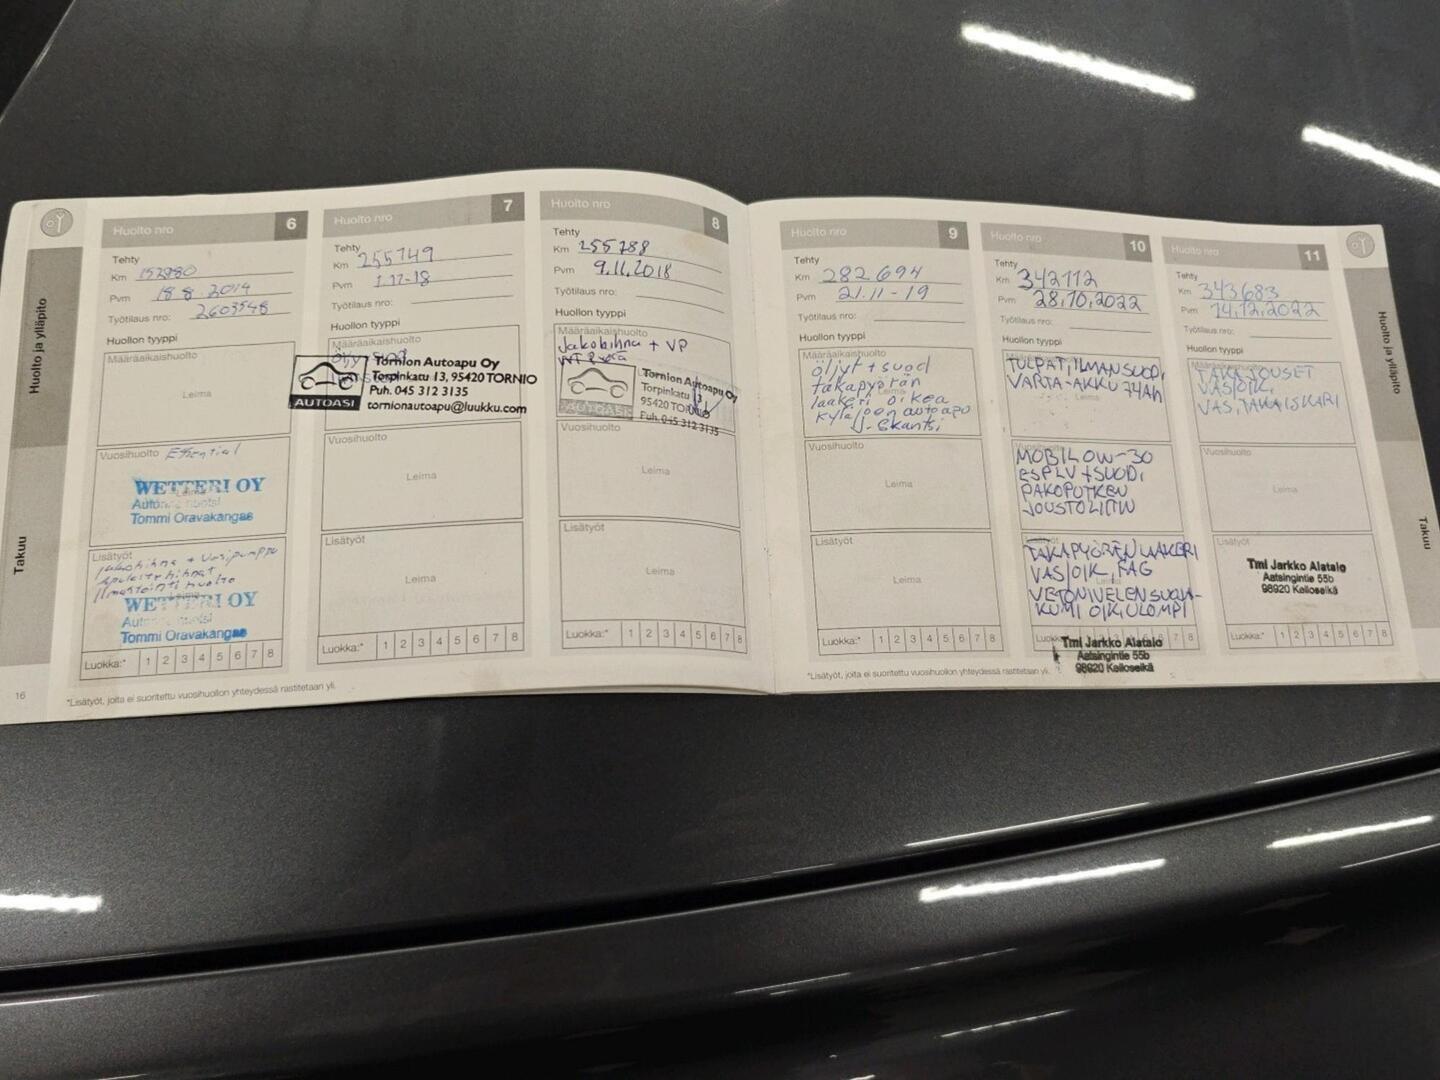 Huolto ja ylläpito
Takuu
16
Huolto nro 6
Tehty
Km 152980
Pvm 18.8.2014
Työtilaus nro: 2603548
Huollon tyyppi
Määräaikaishuolto
Leima
Vuosihuolto Essential
WETTERI OY
Tommi Oravakangas
Lisätyöt
jakohihna + vesipumppu
Ilmastointi huolto
WETTERI OY
Tommi Oravakangas
Luokka:* 1 2 3 4 5 6 7 8
*Lisätyöt, joita ei suoritettu vuosihuollon yhteydessä rastitetaan yli.
Huolto nro 7
Tehty
Km 255749
Pvm 1.11-18
Työtilaus nro:
Huollon tyyppi
Määräaikaishuolto
AUTOASI
Tornion Autoapu Oy
Torpinkatu 13, 95420 TORNIO
Puh. 045 312 3135
tornionautoapu@luukku.com
Vuosihuolto
Leima
Lisätyöt
Leima
Luokka:* 1 2 3 4 5 6 7 8
Huolto nro 8
Tehty
Km 255788
Pvm 9.11.2018
Työtilaus nro:
Huollon tyyppi
Määräaikaishuolto
Jakohihna + VP
AUTOASI
Tornion Autoapu Oy
Torpinkatu 13,
95420 TORNIO
Puh. 045 312 3135
Vuosihuolto
Leima
Lisätyöt
Leima
Luokka:* 1 2 3 4 5 6 7 8
Huolto nro 9
Tehty
Km 282694
Pvm 21.11-19
Työtilaus nro:
Huollon tyyppi
Määräaikaishuolto
öljyt + suod
takapyörän
laakeri oikea
autoapu
Vuosihuolto
Leima
Lisätyöt
Leima
Luokka:* 1 2 3 4 5 6 7 8
*Lisätyöt, joita ei suoritettu vuosihuollon yhteydessä rastitetaan yli.
Huolto nro 10
Tehty
Km 342112
Pvm 28.10.2022
Työtilaus nro:
Huollon tyyppi
TULPAT, ILMANSUOD,
VARTA-AKKU 74Ah
Leima
Vuosihuolto
MOBIL 0W-30
ESP LV + SUOD,
PAKOPUTKEN
JOUSTOLIITIN
TAKAPYÖRÄN LAAKERI
VAS/OIK, FAG
VETONIVELEN SUOJA-
KUMI OIK, ULOMPI
Luokka 7 8
Tmi Jarkko Alatalo
Aatsingintie 55b
98920 Kelloselkä
Huolto nro 11
Tehty
Km 343683
Pvm 14.12.2022
Työtilaus nro:
Huollon tyyppi
Määräaikaishuolto
TAKAJOUSET
VAS/OIK,
VAS, TAKAISKARI
Vuosihuolto
Leima
Lisätyöt
Tmi Jarkko Alatalo
Aatsingintie 55b
98920 Kelloselkä
Luokka:* 1 2 3 4 5 6 7 8
Huolto ja ylläpito
Takuu